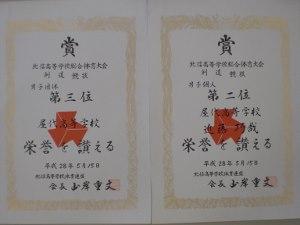 賞
北信高等学校総合体育大会
剣道競技
男子団体
第三位
屋代高等学校
栄誉を讃える
平成28年5月15日
北信高等学校体育連盟
会長 山岸重文
賞
北信高等学校総合体育大会
剣道競技
男子個人
第二位
屋代高等学校
栄誉を讃える
平成28年5月15日
北信高等学校体育連盟
会長 山岸重文